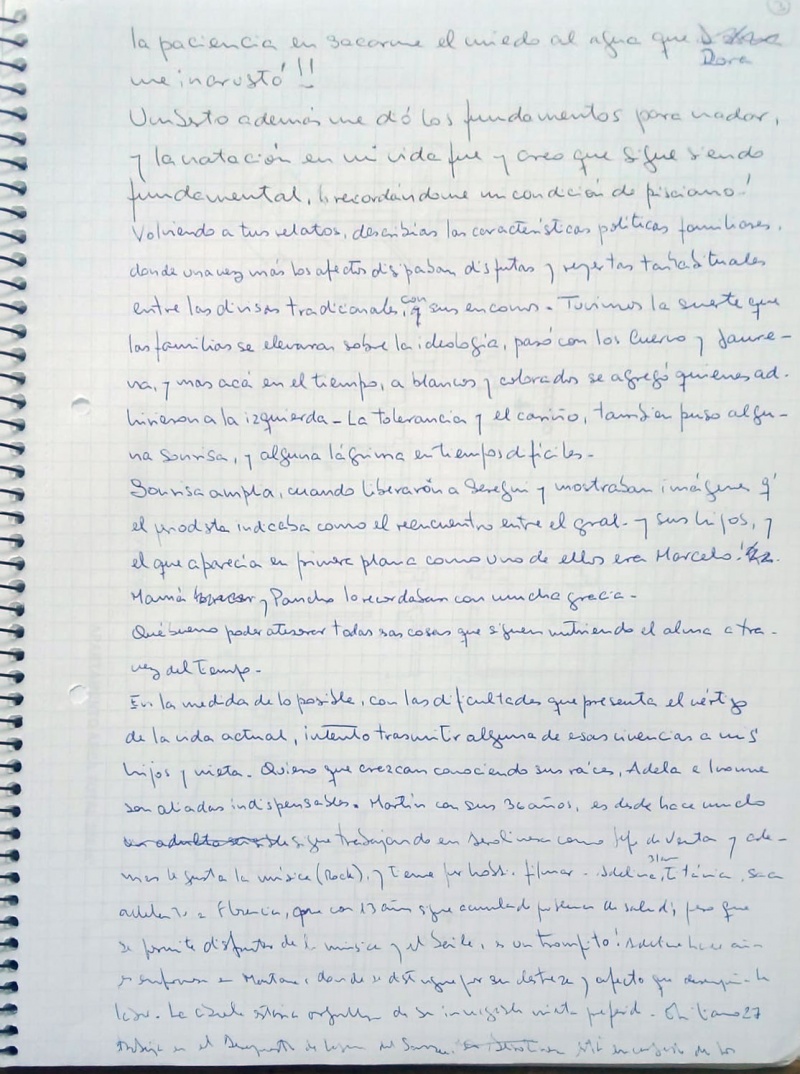 3
la paciencia en sacarme el miedo al agua que
Dora
me incrustó!!
Umberto además me dió los fundamentos para nadar,
y la natación en mi vida fue y creo que sigue siendo
fundamental, recordándome mi condición de pisciano!
Volviendo a tus relatos, describías las características políticas familiares,
donde una vez más los afectos disipaban disputas y reyertas tan habituales
entre las divisas tradicionales, con sus enconos - Tuvimos la suerte que
las familias se elevaran sobre la ideología, pasó con los Cuervo y Jaure-
na, y mas acá en el tiempo, a blancos y colorados se agregó quienes ad-
hirieron a la izquierda - La tolerancia y el cariño, tambien puso algu-
na sonrisa, y alguna lágrima en tiempos difíciles -
Sonrisa amplia, cuando liberarón a Seregni y mostraban imágenes q'
el periodista indicaba como el reencuentro entre el gral - y sus hijos, y
el que aparecía en primera plana como uno de ellos era Marcelo!
Mamá y Pancho lo recordaban con mucha gracia -
Qué bueno poder atesorar todas esas cosas que siguen nutriendo el alma a tra-
vez del tiempo -
En la medida de lo posible, con las dificultades que presenta el vértigo
de la vida actual, intento trasmitir alguna de esas vivencias a mis
hijos y nieta. Quiero que crezcan conociendo sus raíces, Adela e Ivonne
son aliadas indispensables. Martín con sus 36 años, es desde hace mucho
sigue trabajando en como Jefe de Venta y ade-
mas le gusta la música (Rock), y tiene por hobbi filmar - Adelina, 31
adelante a Florencia, que con 13 años sigue con problemas de salud, pero que
se permite disfrutar de la música y el baile, es un trompito! Adelina hace
es enfermera en donde se distingue por su destreza y afecto que
La abuela estaría orgullosa de su nieta 27
trabaja en el de los